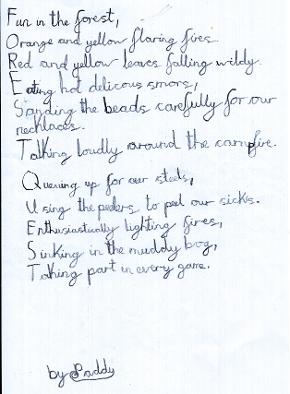 Fun in the forest,
Orange and yellow flaring fires.
Red and yellow leaves falling wildy.
Eating hot delicous smors,
Sanding the beads carefully for our
necklaces.
Talking loudly around the campfire.
Queuing up for our steels,
Using the peelers to pel our sicks.
Enthusiastually lighting fires,
Sinking in the muddy bog,
Taking part in every game.
by Paddy